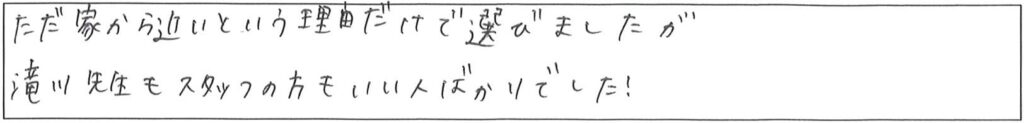 ただ家から近いという理由だけで選びましたが
滝川先生もスタッフの方もいい人ばかりでした!